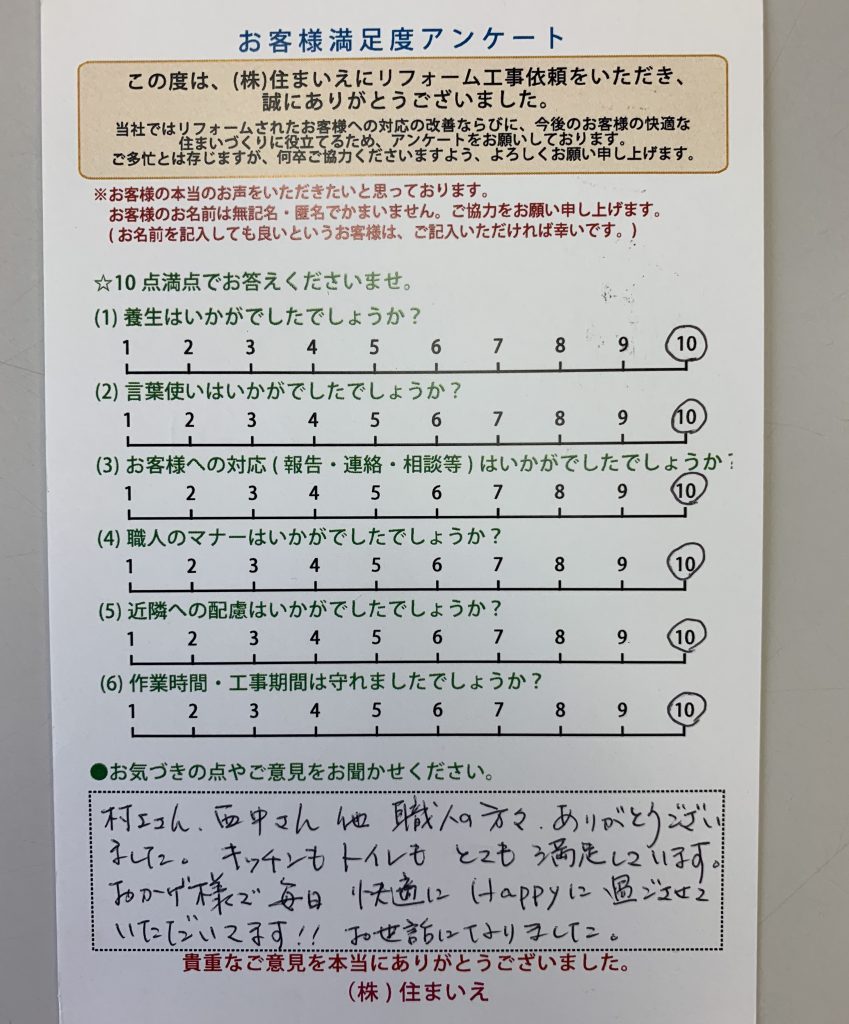 お客様満足度アンケート
この度は、(株)住まいえにリフォーム工事依頼をいただき、
誠にありがとうございました。
当社ではリフォームされたお客様への対応の改善ならびに、今後のお客様の快適な
住まいづくりに役立てるため、アンケートをお願いしております。
ご多忙とは存じますが、何卒ご協力くださいますよう、よろしくお願い申し上げます。
※お客様の本当のお声をいただきたいと思っております。
お客様のお名前は無記名・匿名でかまいません。ご協力をお願い申し上げます。
(お名前を記入しても良いというお客様は、ご記入いただければ幸いです。)
☆10点満点でお答えくださいませ。
(1) 養生はいかがでしたでしょうか？
1 2 3 4 5 6 7 8 9 10
(2) 言葉使いはいかがでしたでしょうか？
1 2 3 4 5 6 7 8 9 10
(3) お客様への対応(報告・連絡・相談等)はいかがでしたでしょうか？
1 2 3 4 5 6 7 8 9 10
(4) 職人のマナーはいかがでしたでしょうか？
1 2 3 4 5 6 7 8 9 10
(5) 近隣への配慮はいかがでしたでしょうか？
1 2 3 4 5 6 7 8 9 10
(6) 作業時間・工事期間は守れましたでしょうか？
1 2 3 4 5 6 7 8 9 10
●お気づきの点やご意見をお聞かせください。
村工さん、西中さん 他 職人の方々、ありがとうござい
ました。キッチンも トイレも とても 満足しています。
おかげ様で 毎日 快適に Happyに 過ごさせて
いただいてます!! お世話になりました。
貴重なご意見を本当にありがとうございました。
(株)住まいえ